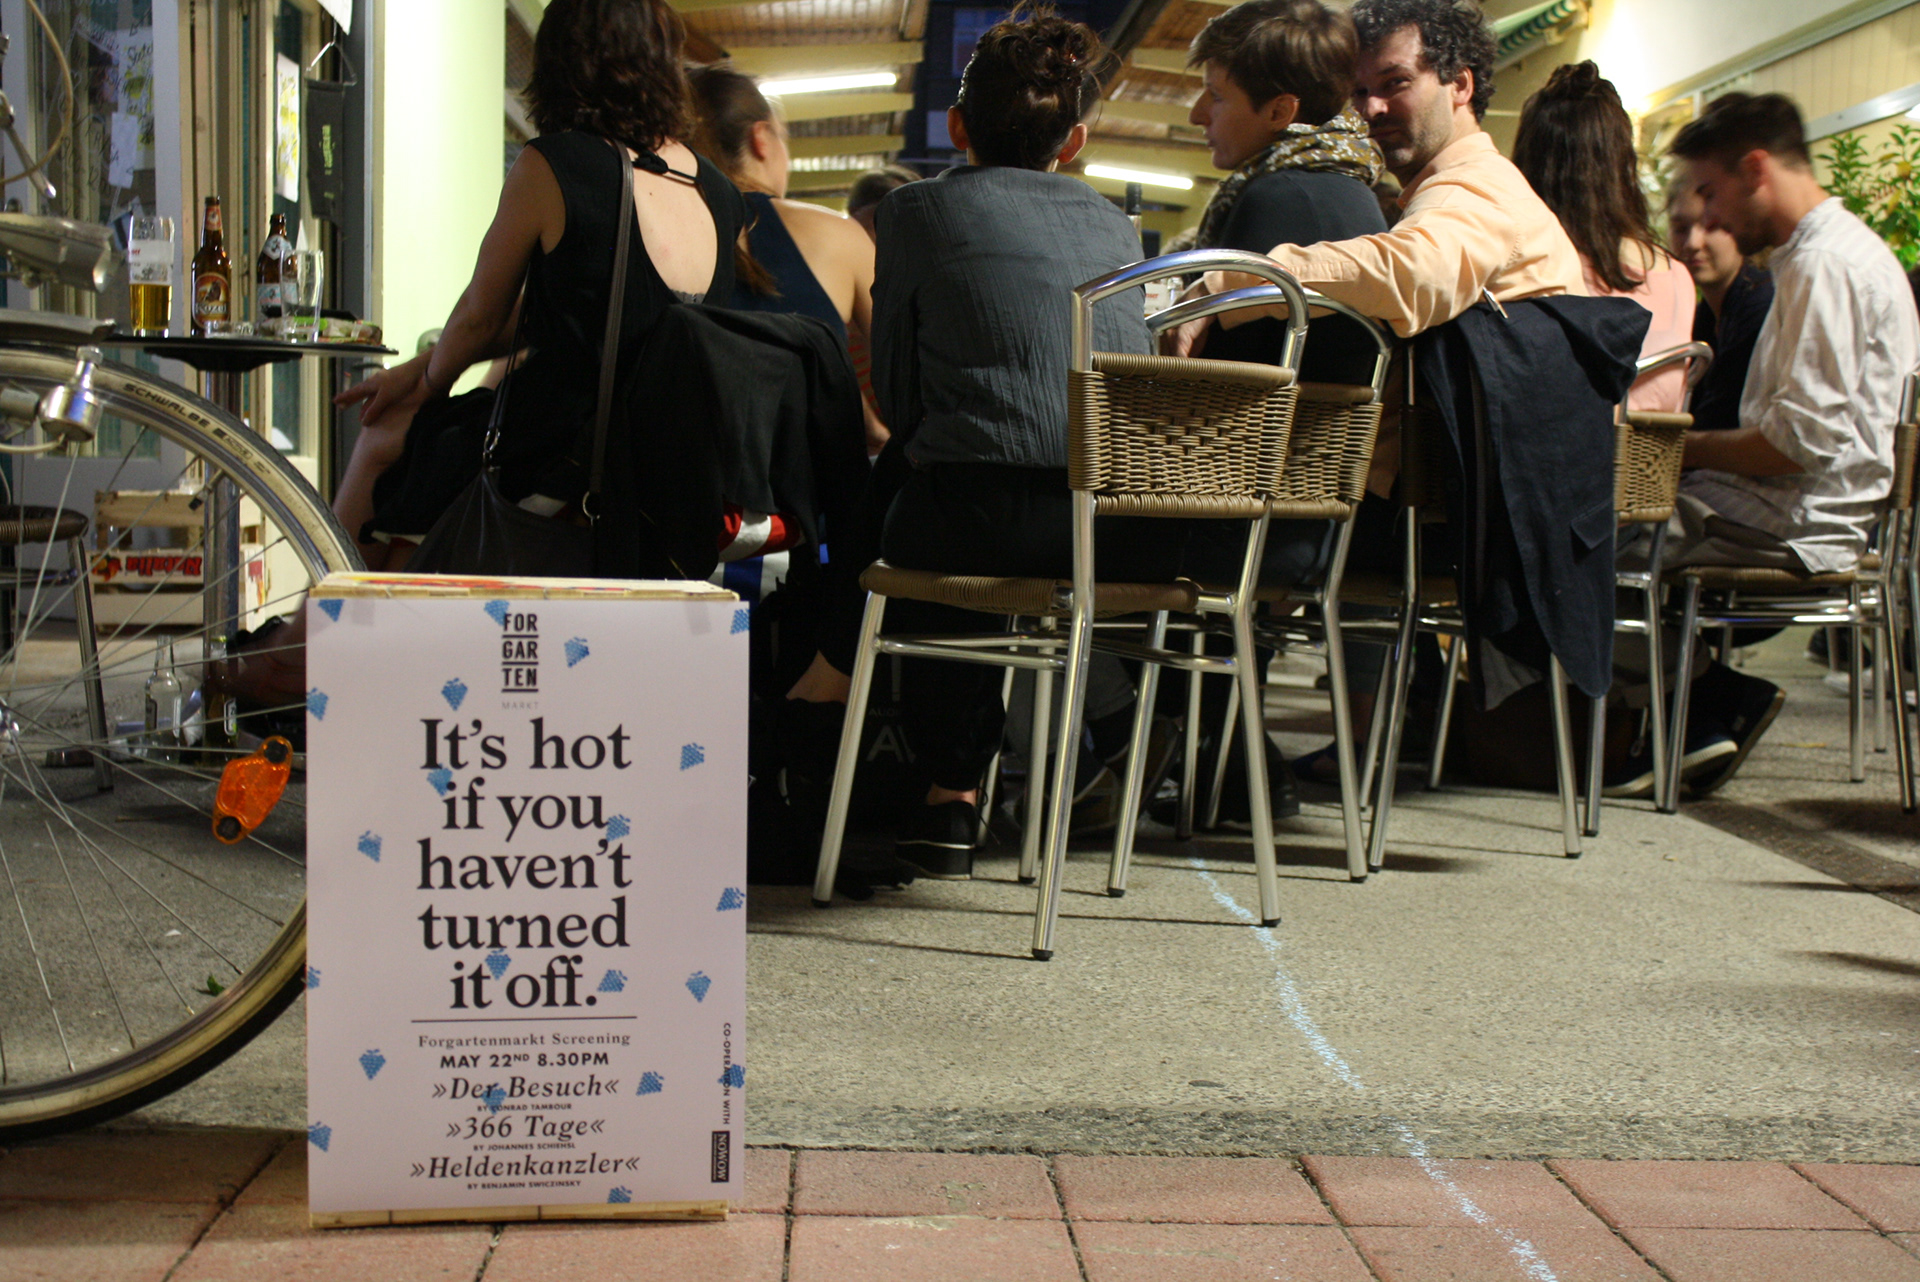 FOR
GAR
TEN
MARKT
It's hot
if you
haven't
turned
it off.
Forgartenmarkt Screening
MAY 22ND 8.30PM
»Der Besuch«
BY CONRAD TAMBOUR
»366 Tage«
BY JOHANNES SCHIEHSL
»Heldenkanzler«
BY BENJAMIN SWICZINSKY
CO-OPERATION WITH
NOWOW
SCHWALBE
Natalia